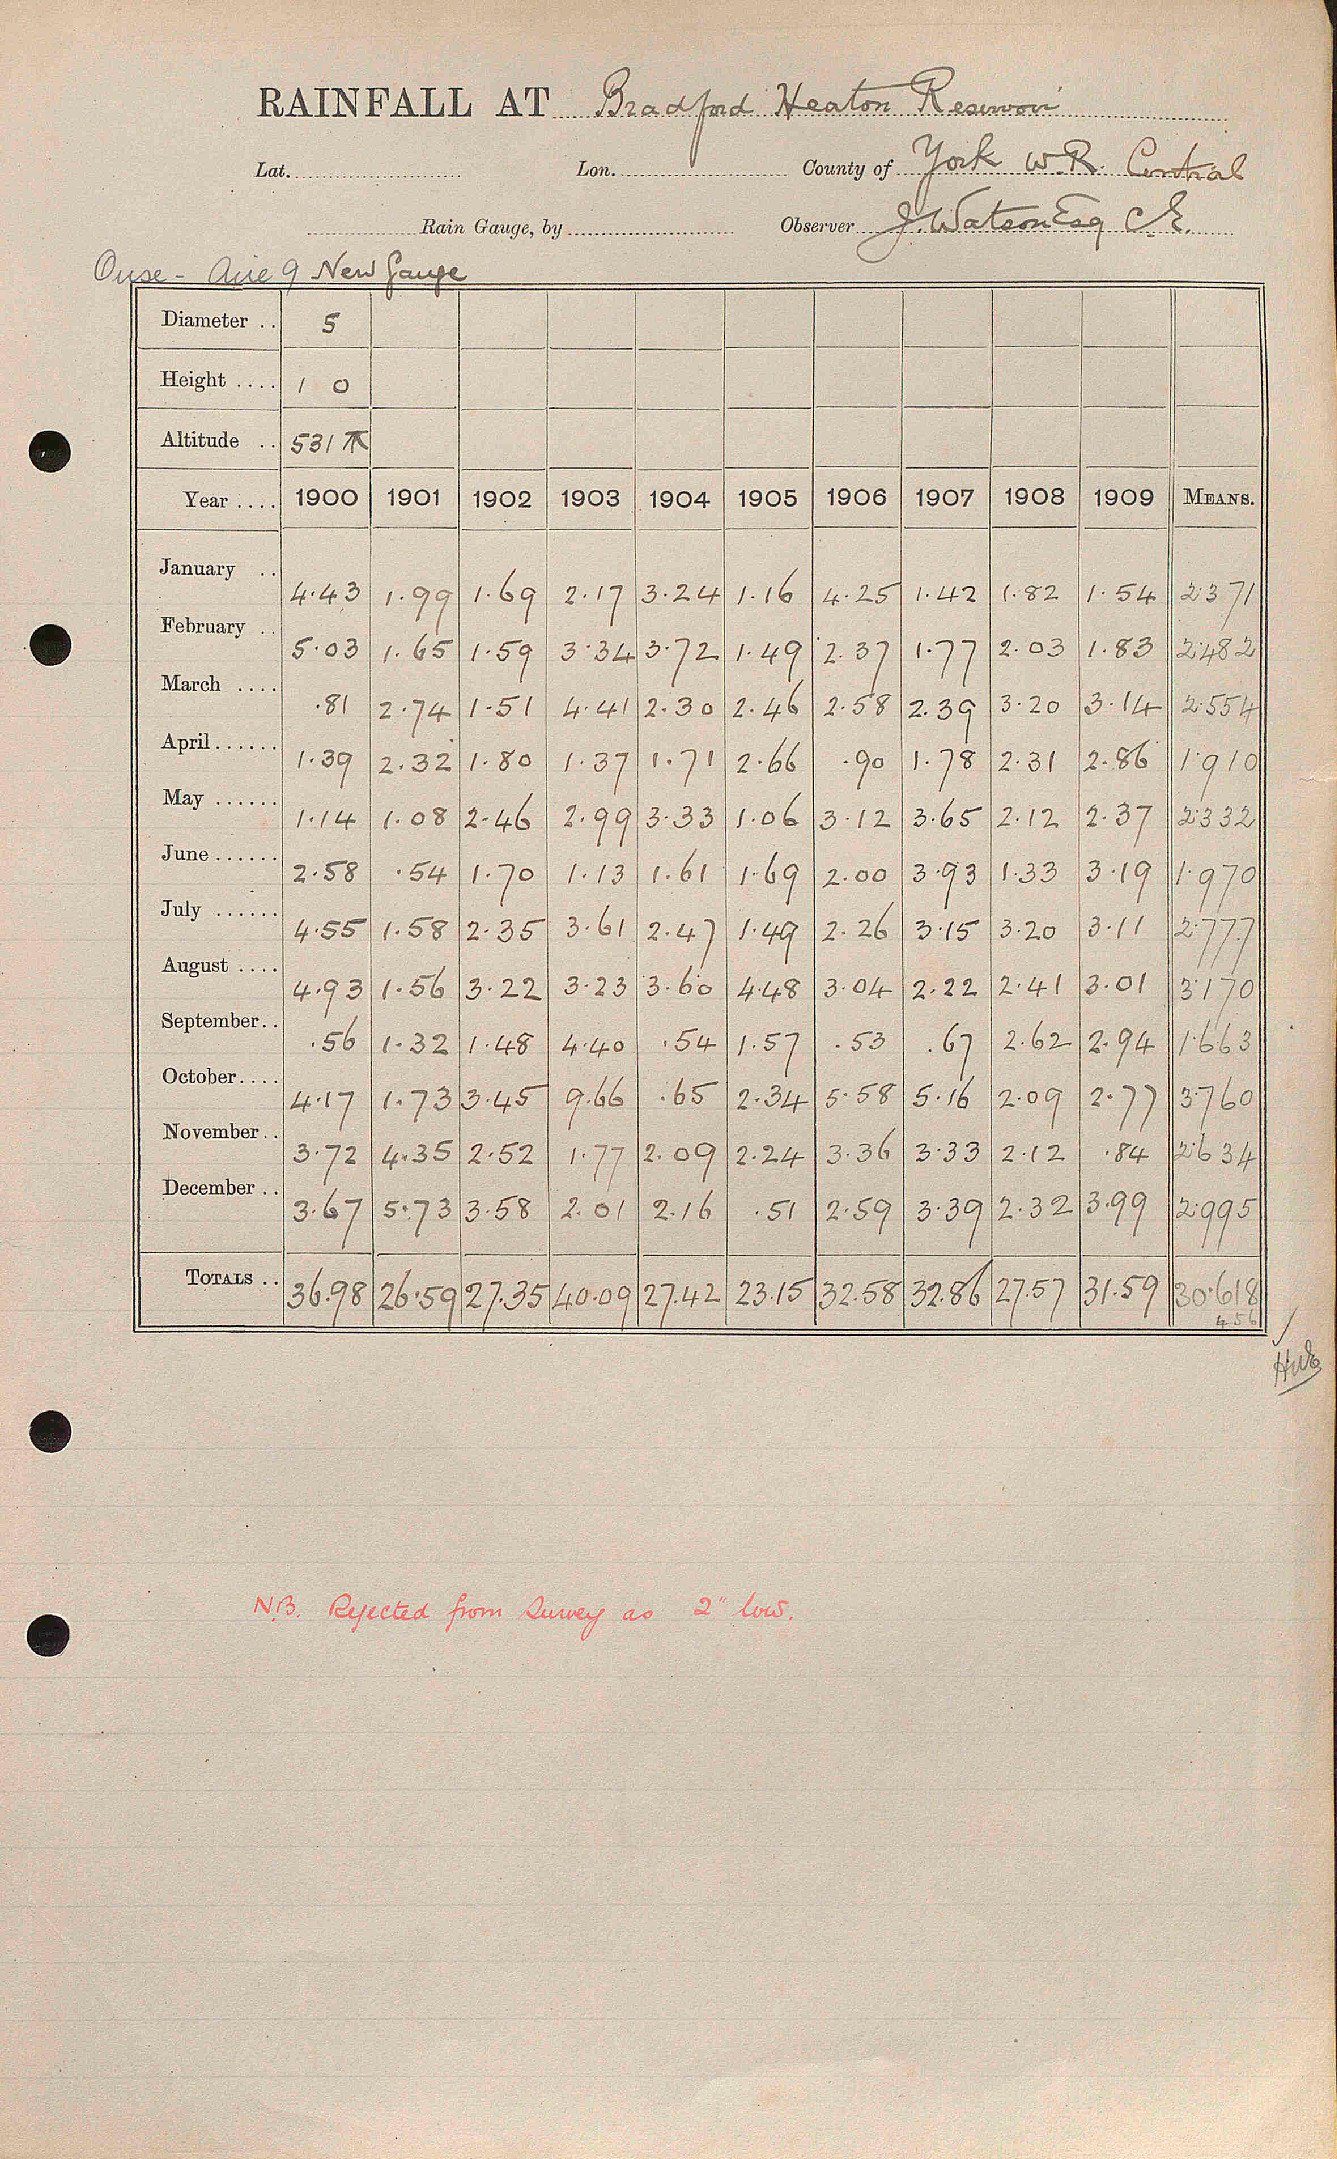 RAINFALL AT Bradford Heaton Reservoir
Lat. Lon. County of York W.R. Central
Rain Gauge, by Observer J. Watson Esq C.E.
Ouse - Aire 9 New Gauge
Diameter .. 5
Height .... 1 0
Altitude .. 531
Year .... 1900 1901 1902 1903 1904 1905 1906 1907 1908 1909 MEANS.
January .. 4.43 1.99 1.69 2.17 3.24 1.16 4.25 1.42 1.82 1.54 2.371
February .. 5.03 1.65 1.59 3.34 3.72 1.49 2.37 1.77 2.03 1.83 2.482
March .... .81 2.74 1.51 4.41 2.30 2.46 2.58 2.39 3.20 3.14 2.554
April...... 1.39 2.32 1.80 1.37 1.71 2.66 .90 1.78 2.31 2.86 1.910
May ...... 1.14 1.08 2.46 2.99 3.33 1.06 3.12 3.65 2.12 2.37 2.332
June...... 2.58 .54 1.70 1.13 1.61 1.69 2.00 3.93 1.33 3.19 1.970
July ...... 4.55 1.58 2.35 3.61 2.47 1.49 2.26 3.15 3.20 3.11 2.777
August .... 4.93 1.56 3.22 3.23 3.60 4.48 3.04 2.22 2.41 3.01 3.170
September.. .56 1.32 1.48 4.40 .54 1.57 .53 .67 2.62 2.94 1.663
October.... 4.17 1.73 3.45 9.66 .65 2.34 5.58 5.16 2.09 2.77 3.760
November.. 3.72 4.35 2.52 1.77 2.09 2.24 3.36 3.33 2.12 .84 2.634
December .. 3.67 5.73 3.58 2.01 2.16 .51 2.59 3.39 2.32 3.99 2.995
TOTALS .. 36.98 26.59 27.35 40.09 27.42 23.15 32.58 32.86 27.57 31.59 30.618
4 56
N.B. Rejected from Survey as 2" low.